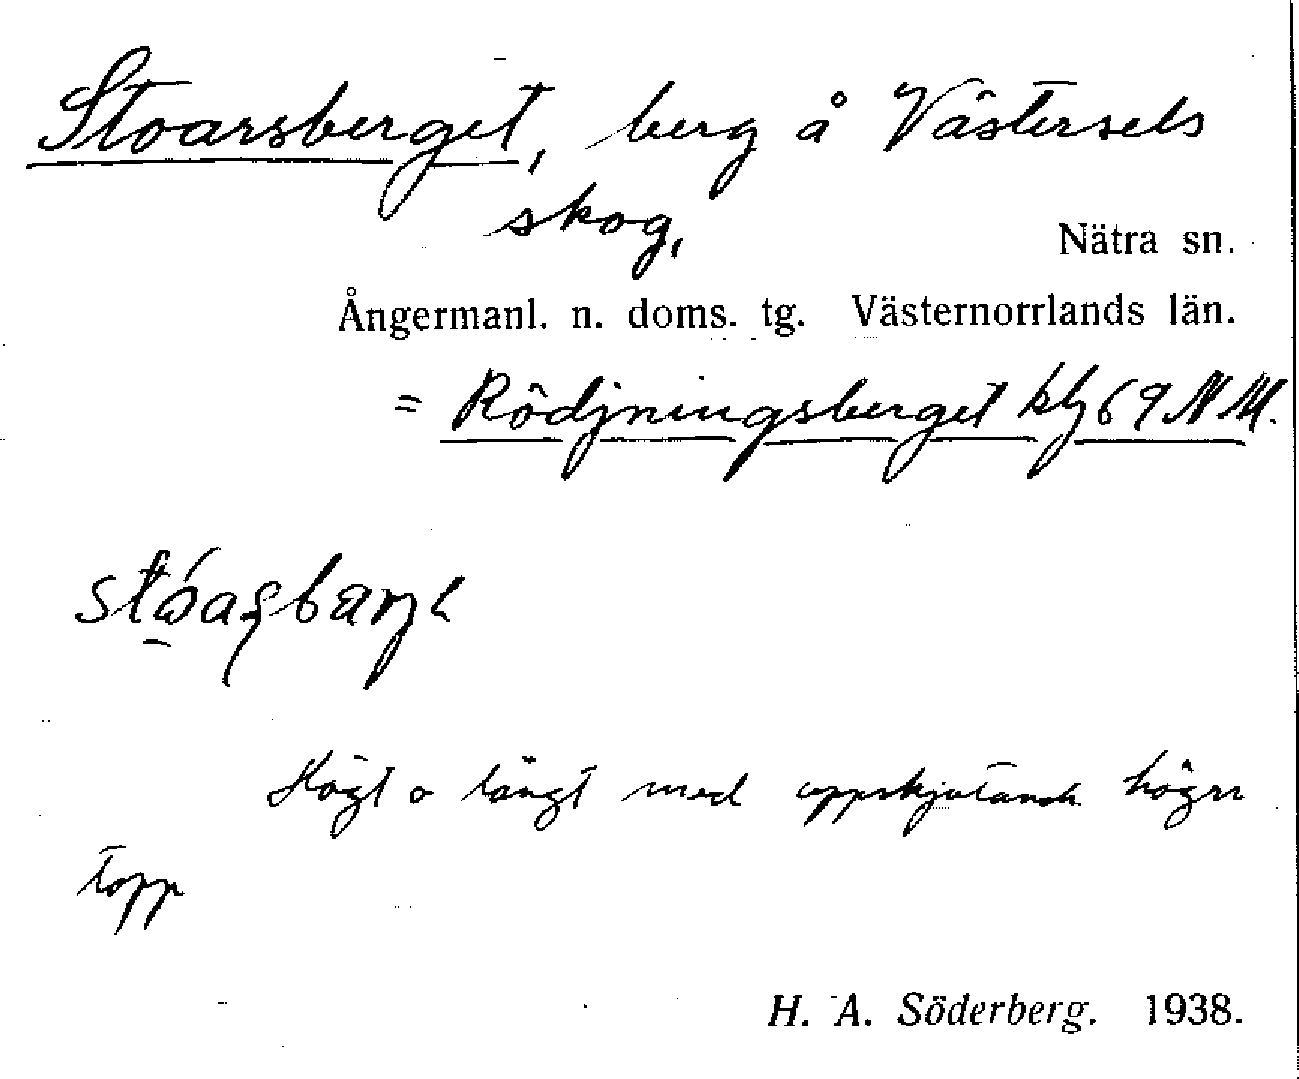 Stoarsberget, berg å Västersels
skog,
Nätra sn.
Ångermanl. n. doms. tg. Västernorrlands län.
= Rödjningsberget kbj 69 NM.
Högt o långt med uppskjutande högre
topp
H. A. Söderberg. 1938.